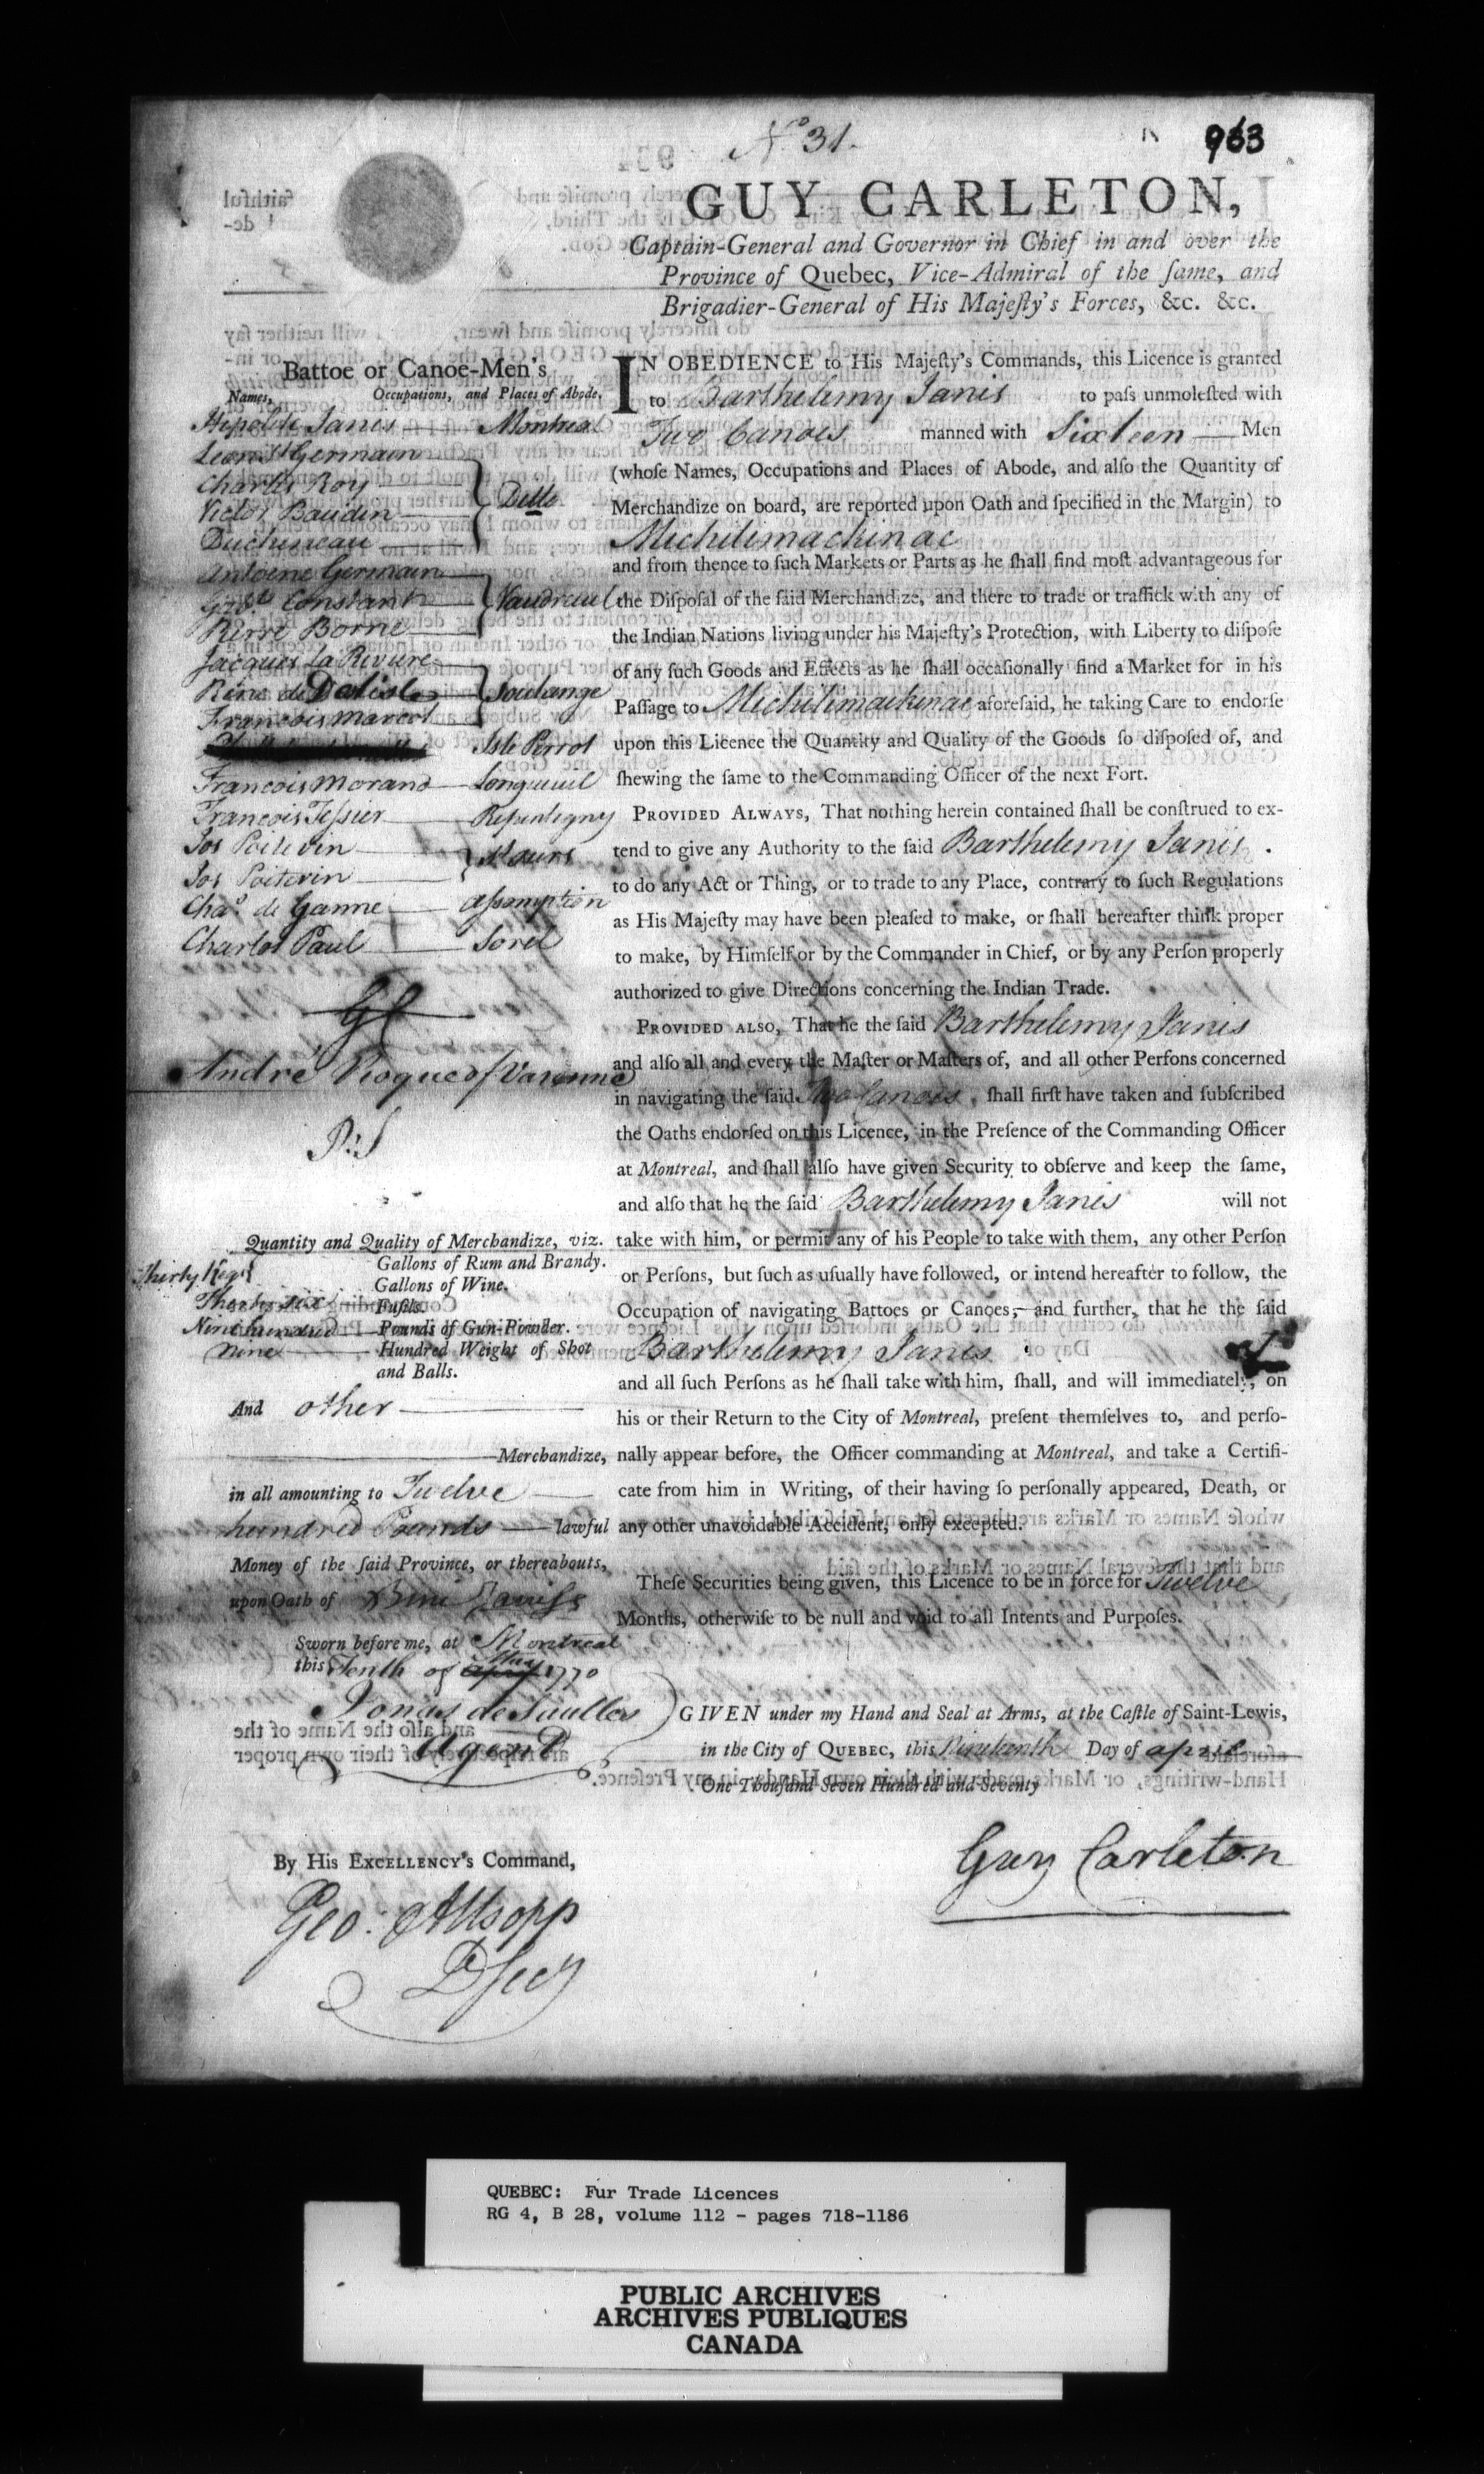 No 31.
963
GUY CARLETON,
Captain-General and Governor in Chief in and over the
Province of Quebec, Vice-Admiral of the ſame, and
Brigadier-General of His Majeſty's Forces, &c. &c.
Battoe or Canoe-Men's
Names, Occupations, and Places of Abode.
Hipolite Janis Montreal
Leon St Germain
Charles Roy
Victor Baudin Do
Duchereau
Antoine Germain
Constant Vaudreuil
Pierre Borne
Jacques La Riviere
René de Delisle Soulange
Francois Marcot
Isle Perrot
Francois Morand Longueuil
Francois Tessier Repentigny
Jos Poitevin
Jos Poitevin
Chas de Ganne assomption
Charles Paul Sorel
GC
André Roque of Varenne
P:S
Quantity and Quality of Merchandize, viz.
Thirty Kegs Gallons of Rum and Brandy.
Gallons of Wine.
Thirty six Fuſils.
Nine hundred Pounds of Gun-Powder.
nine Hundred Weight of Shot
and Balls.
And other
Merchandize,
in all amounting to Twelve
hundred Pounds lawful
Money of the ſaid Province, or thereabouts,
upon Oath of
Sworn before me, at Montreal
this Tenth of april May 1770
Agent
By His EXCELLENCY's Command,
Geo: Allsopp
D Secy
IN OBEDIENCE to His Majeſty's Commands, this Licence is granted
to Barthelemy Janis to paſs unmoleſted with
Two Canoes manned with Sixteen Men
(whoſe Names, Occupations and Places of Abode, and alſo the Quantity of
Merchandize on board, are reported upon Oath and ſpecified in the Margin) to
Michilimackinac
and from thence to ſuch Markets or Parts as he ſhall find moſt advantageous for
the Diſpoſal of the ſaid Merchandize, and there to trade or traffick with any of
the Indian Nations living under his Majeſty's Protection, with Liberty to diſpoſe
of any ſuch Goods and Effects as he ſhall occaſionally find a Market for in his
Paſſage to Michilimackinac aforeſaid, he taking Care to endorſe
upon this Licence the Quantity and Quality of the Goods ſo diſpoſed of, and
ſhewing the ſame to the Commanding Officer of the next Fort.
PROVIDED ALWAYS, That nothing herein contained ſhall be conſtrued to ex-
tend to give any Authority to the ſaid Barthelemy Janis.
to do any Act or Thing, or to trade to any Place, contrary to ſuch Regulations
as His Majeſty may have been pleaſed to make, or ſhall hereafter think proper
to make, by Himſelf or by the Commander in Chief, or by any Perſon properly
authorized to give Directions concerning the Indian Trade.
PROVIDED ALSO, That he the ſaid Barthelemy Janis
and alſo all and every the Maſter or Maſters of, and all other Perſons concerned
in navigating the ſaid Two Canoes, ſhall firſt have taken and ſubſcribed
the Oaths endorſed on this Licence, in the Preſence of the Commanding Officer
at Montreal, and ſhall alſo have given Security to obſerve and keep the ſame,
and alſo that he the ſaid Barthelemy Janis will not
take with him, or permit any of his People to take with them, any other Perſon
or Perſons, but ſuch as uſually have followed, or intend hereafter to follow, the
Occupation of navigating Battoes or Canoes, and further, that he the ſaid
Barthelemy Janis
and all ſuch Perſons as he ſhall take with him, ſhall, and will immediately, on
his or their Return to the City of Montreal, preſent themſelves to, and perſo-
nally appear before, the Officer commanding at Montreal, and take a Certifi-
cate from him in Writing, of their having ſo perſonally appeared, Death, or
any other unavoidable Accident, only excepted.
Theſe Securities being given, this Licence to be in force for Twelve
Months, otherwiſe to be null and void to all Intents and Purpoſes.
GIVEN under my Hand and Seal at Arms, at the Caſtle of Saint-Lewis,
in the City of QUEBEC, this Day of april
One Thouſand Seven Hundred and Seventy
Guy Carleton
QUEBEC: Fur Trade Licences
RG 4, B 28, volume 112 - pages 718-1186
PUBLIC ARCHIVES
ARCHIVES PUBLIQUES
CANADA